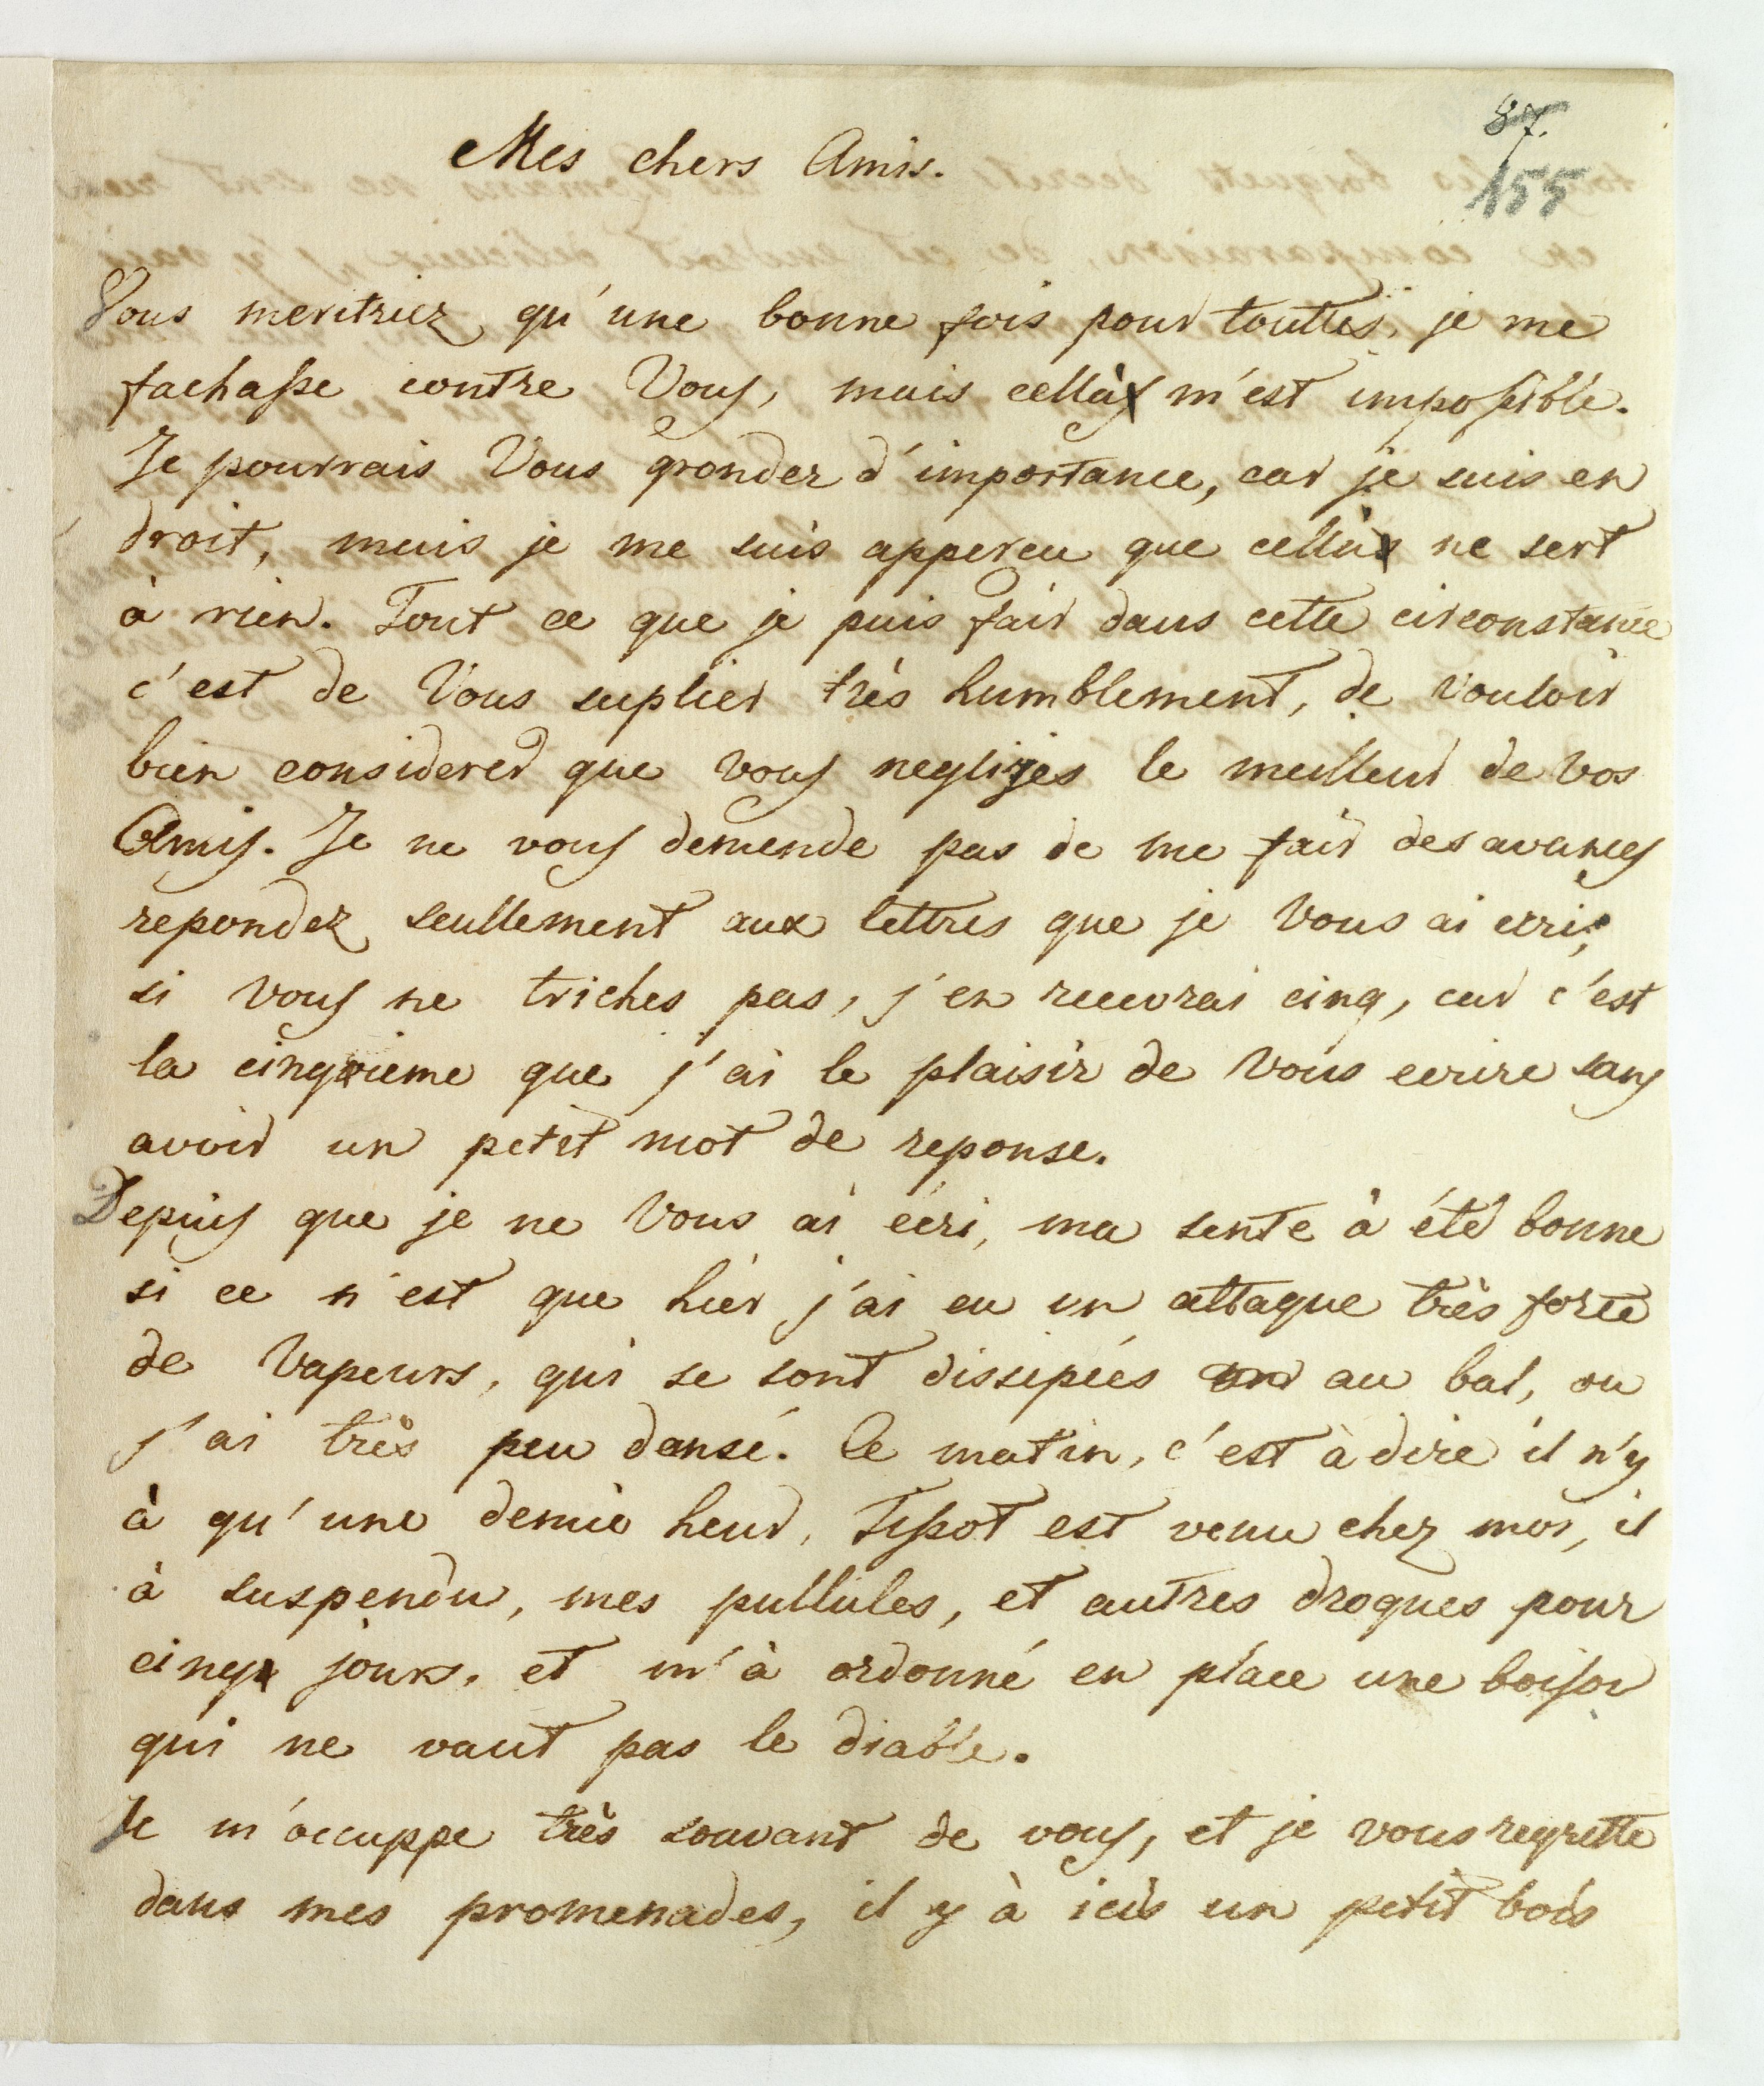 87.
155
Mes chers Amis.
Vous meritriez qu'une bonne fois pour touttes, je me
fachasse contre Vous, mais cellà m'est impossible.
Je pourrais Vous gronder d'importance, car je suis en
droit, mais je me suis appercu que cellà ne sert
à rien. Tout ce que je puis fair dans cette circonstance
c'est de Vous suplier très humblement, de vouloir
bien considerer que vous negliges le meilleur de vos
Amis. Je ne vous demende pas de me fair des avances
repondez seullement aux lettres que je Vous ai ecris,
si vous ne triches pas, j'en recevrai cinq, car c'est
la cinqieme que j'ai le plaisir de Vous ecrire sans
avoir un petit mot de reponse.
Depuis que je ne Vous ai écri, ma sente à été bonne
si ce n'est que hier j'ai eu un attaque très forte
de Vapeurs, qui se sont dissipées au bal, ou
j'ai très peu dansé. Ce matin, c'est à dire il n'y
à qu'une demie heur, Tissot est venu chez moi, il
à suspendu, mes pullules, et autres drogues pour
cinq jours, et m'à ordonné en place une boison
qui ne vaut pas le diable.
Je m'occuppe très souvant de vous, et je vous regrette
dans mes promenades, il y à icis un petit bois